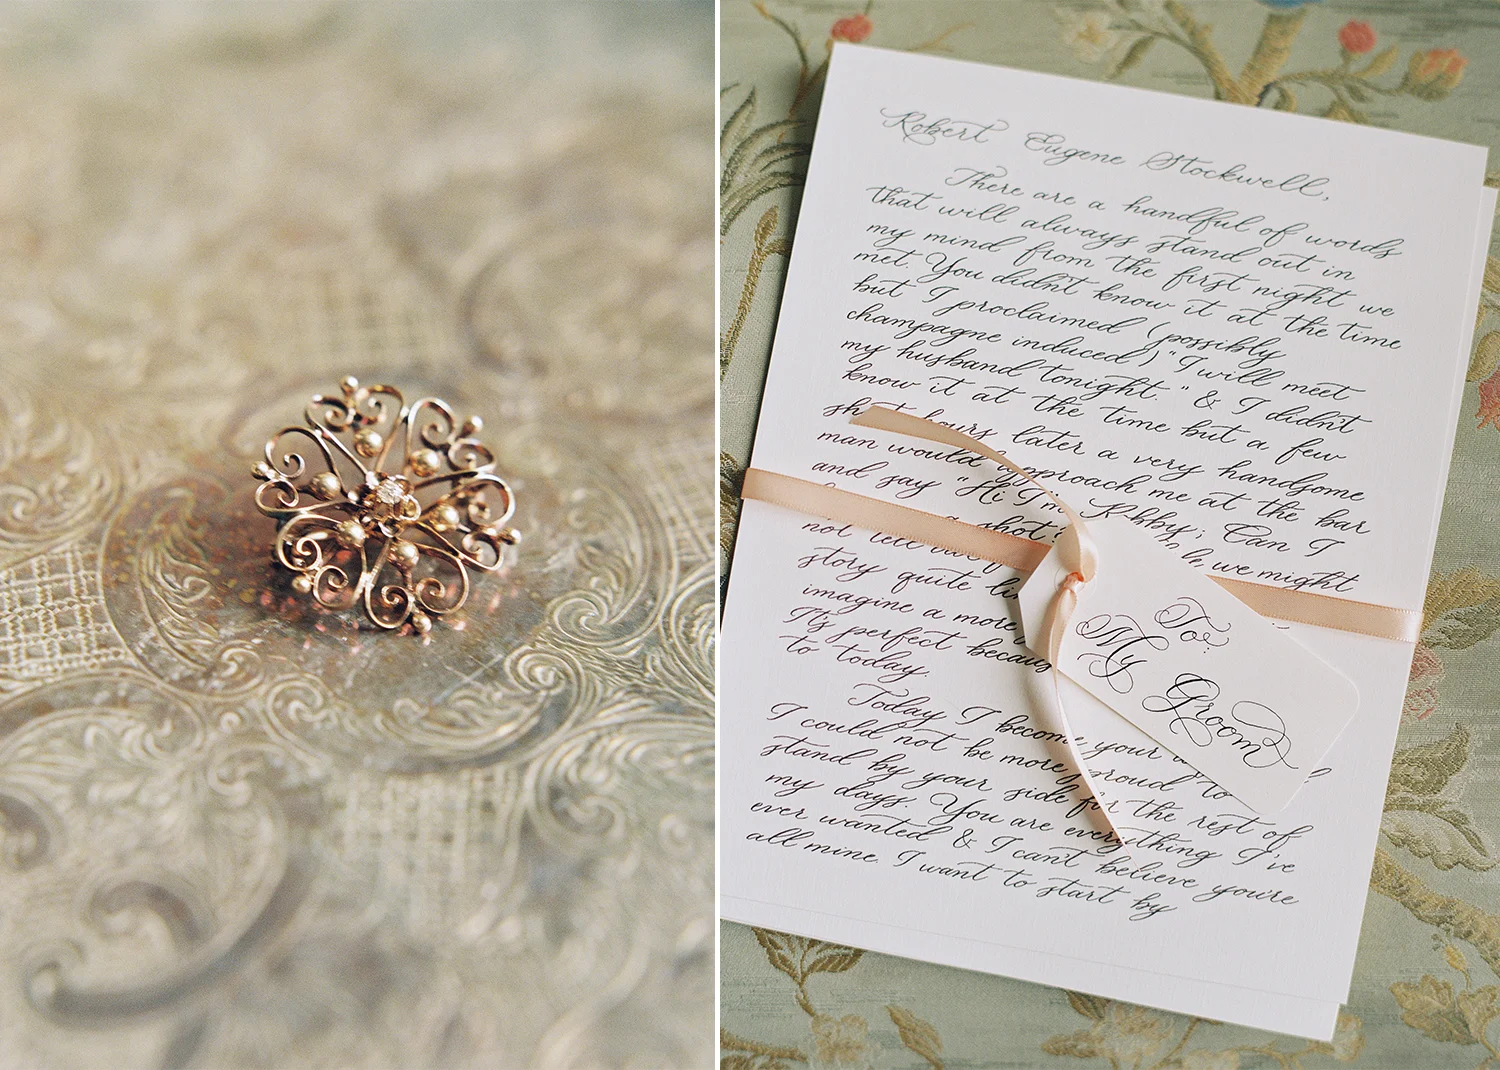 Robert Eugene Stockwell,
There are a handful of words
that will always stand out in
my mind from the first night we
met. You didn't know it at the time
but I proclaimed (possibly
champagne induced) "I will meet
my husband tonight." & I didn't
know it at the time but a few
short hours later a very handsome
man would approach me at the bar
and say "Hi I'm Robby; Can I
a shot?
we might
not tell our
story quite
imagine a more
It's perfect because
to today.
Today I become your
I could not be more proud to
stand by your side for the rest of
my days. You are everything I've
ever wanted & I can't believe you're
all mine. I want to start by
To:
My
Groom